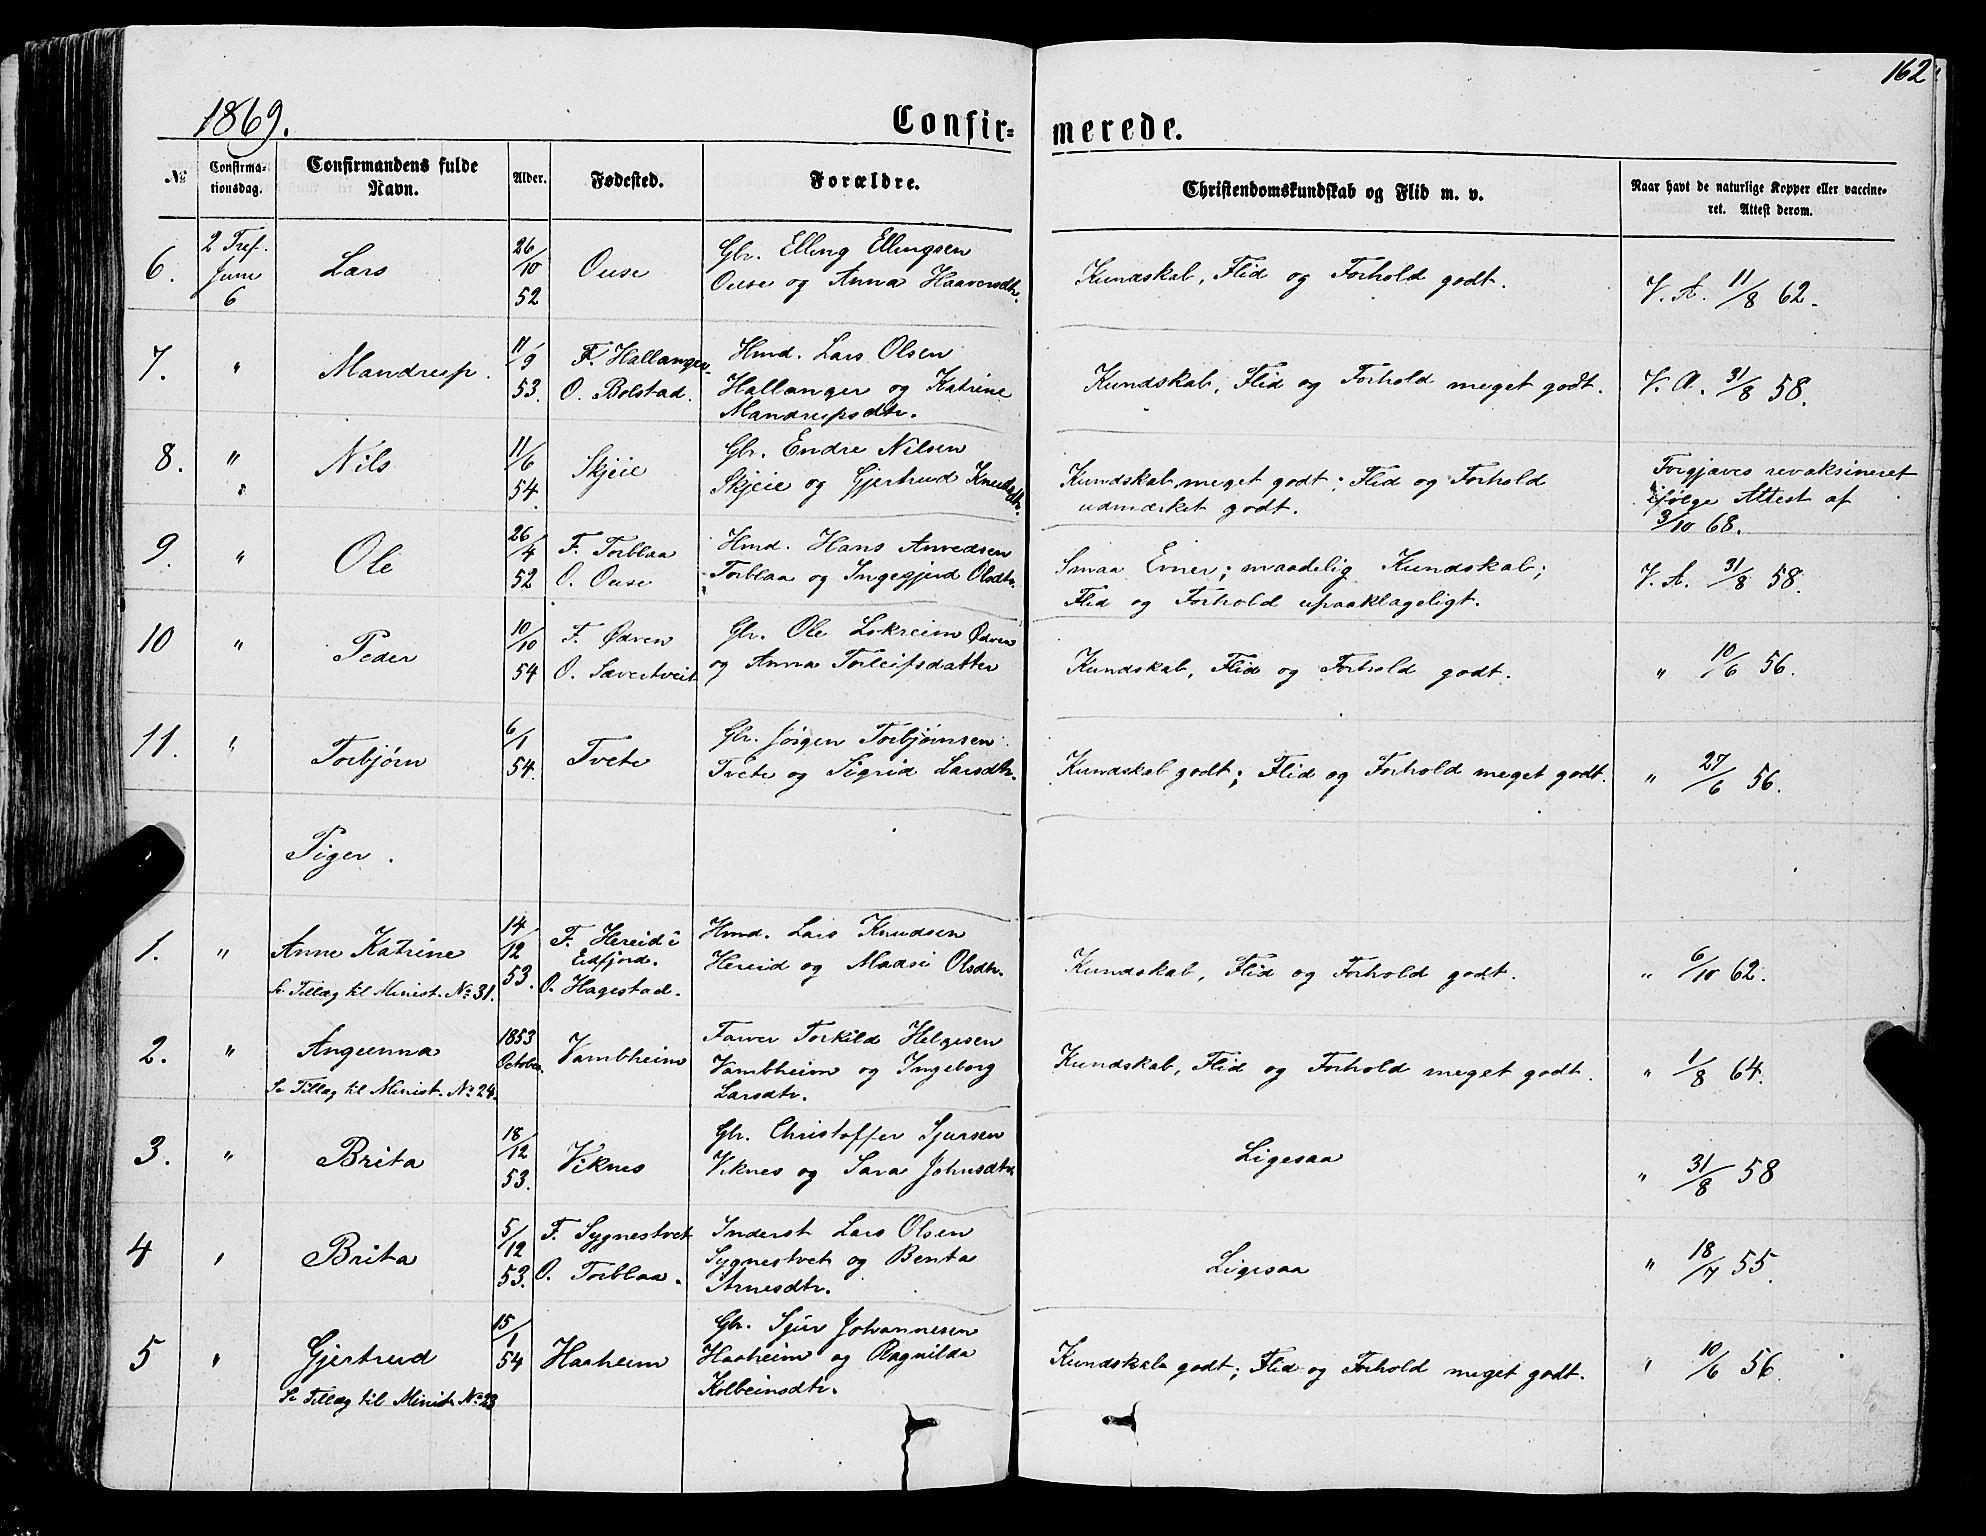 162
1869.
Confir=
merede.
№
Confirma-
tionsdag.
Confirmandens fulde
Navn.
Alder.
Fødested.
Forældre.
Christendomskundskab og Flid m. v.
Naar havt de naturlige Kopper eller vaccine-
ret. Attest derom.
6.
2 Tref.
Juni
6
Lars
26/10
52
Ouse
Gbr. Elling Ellingsen
Ouse og Anna Haaversdtr.
Kundskab, Flid og Forhold godt.
V. A. 11/8 62.
7.
"
Mandrup.
11/9
53.
F. Hallanger
O. Bolstad.
Hmd. Lars Olsen
Hallanger og Katrine
Mandrupsdtr.
Kundskab, Flid og Forhold meget godt.
V. A. 31/8 58.
8.
"
Nils
11/6
54.
Skjeie
Gbr. Endre Nilsen
Skjeie og Gjertrud Knudsdtr.
Kundskab meget godt; Flid og Forhold
udmærket godt.
Forgjæves revaksineret
ifølge Attest af
3/10 68.
9.
"
Ole
26/4
52
F. Torblaa
O. Ouse
Hmd. Hans Anvedsen
Torblaa og Ingegjerd Olsdtr.
Smaa Evner; maadelig Kundskab;
Flid og Forhold upaaklageligt.
V. A. 31/8 58.
10
"
Peder
10/10
54
F. Ødven
O. Sævertveit
Gbr. Ole Lokreim Ødven
og Anna Torleifsdatter
Kundskab, Flid og Forhold godt.
" 10/6 56.
11.
"
Torbjørn
6/1
54.
Tvete
Gbr. Jørgen Torbjørnsen
Tvete og Sigrid Larsdtr.
Kundskab godt; Flid og Forhold meget godt.
" 27/6 56.
Piger.
1.
"
Anne Katrine
Se Tillæg til Minist. No 31.
14/12
53.
F. Hereid i
Eidfjord.
O. Hagestad.
Hmd. Lars Knudsen
Hereid og Madsi Olsdtr.
Kundskab, Flid og Forhold godt.
" 6/10 62.
2.
"
Angunna
Se Tillæg til Minist. No 24.
1853
October.
Vambheim
Farver Torkild Helgesen
Vambheim og Ingeborg
Larsdtr.
Kundskab, Flid og Forhold meget godt.
" 1/8 64.
3.
"
Brita
18/12
53.
Viknes
Gbr. Christoffer Sjursen
Viknes og Sara Johnsdtr.
Ligesaa
" 31/8 58
4
"
Brita
5/12
53.
F. Sygnestvet
O. Torblaa.
Inderst Lars Olsen
Sygnestvet og Benta
Arnesdtr.
Ligesaa
" 18/7 55.
5
"
Gjertrud
Se Tillæg til Minist. No 23
15/1
54
Haaheim
Gbr. Sjur Johannesen
Haaheim og Ragnilda
Kolbeinsdtr.
Kundskab godt; Flid og Forhold meget godt.
" 10/6 56.